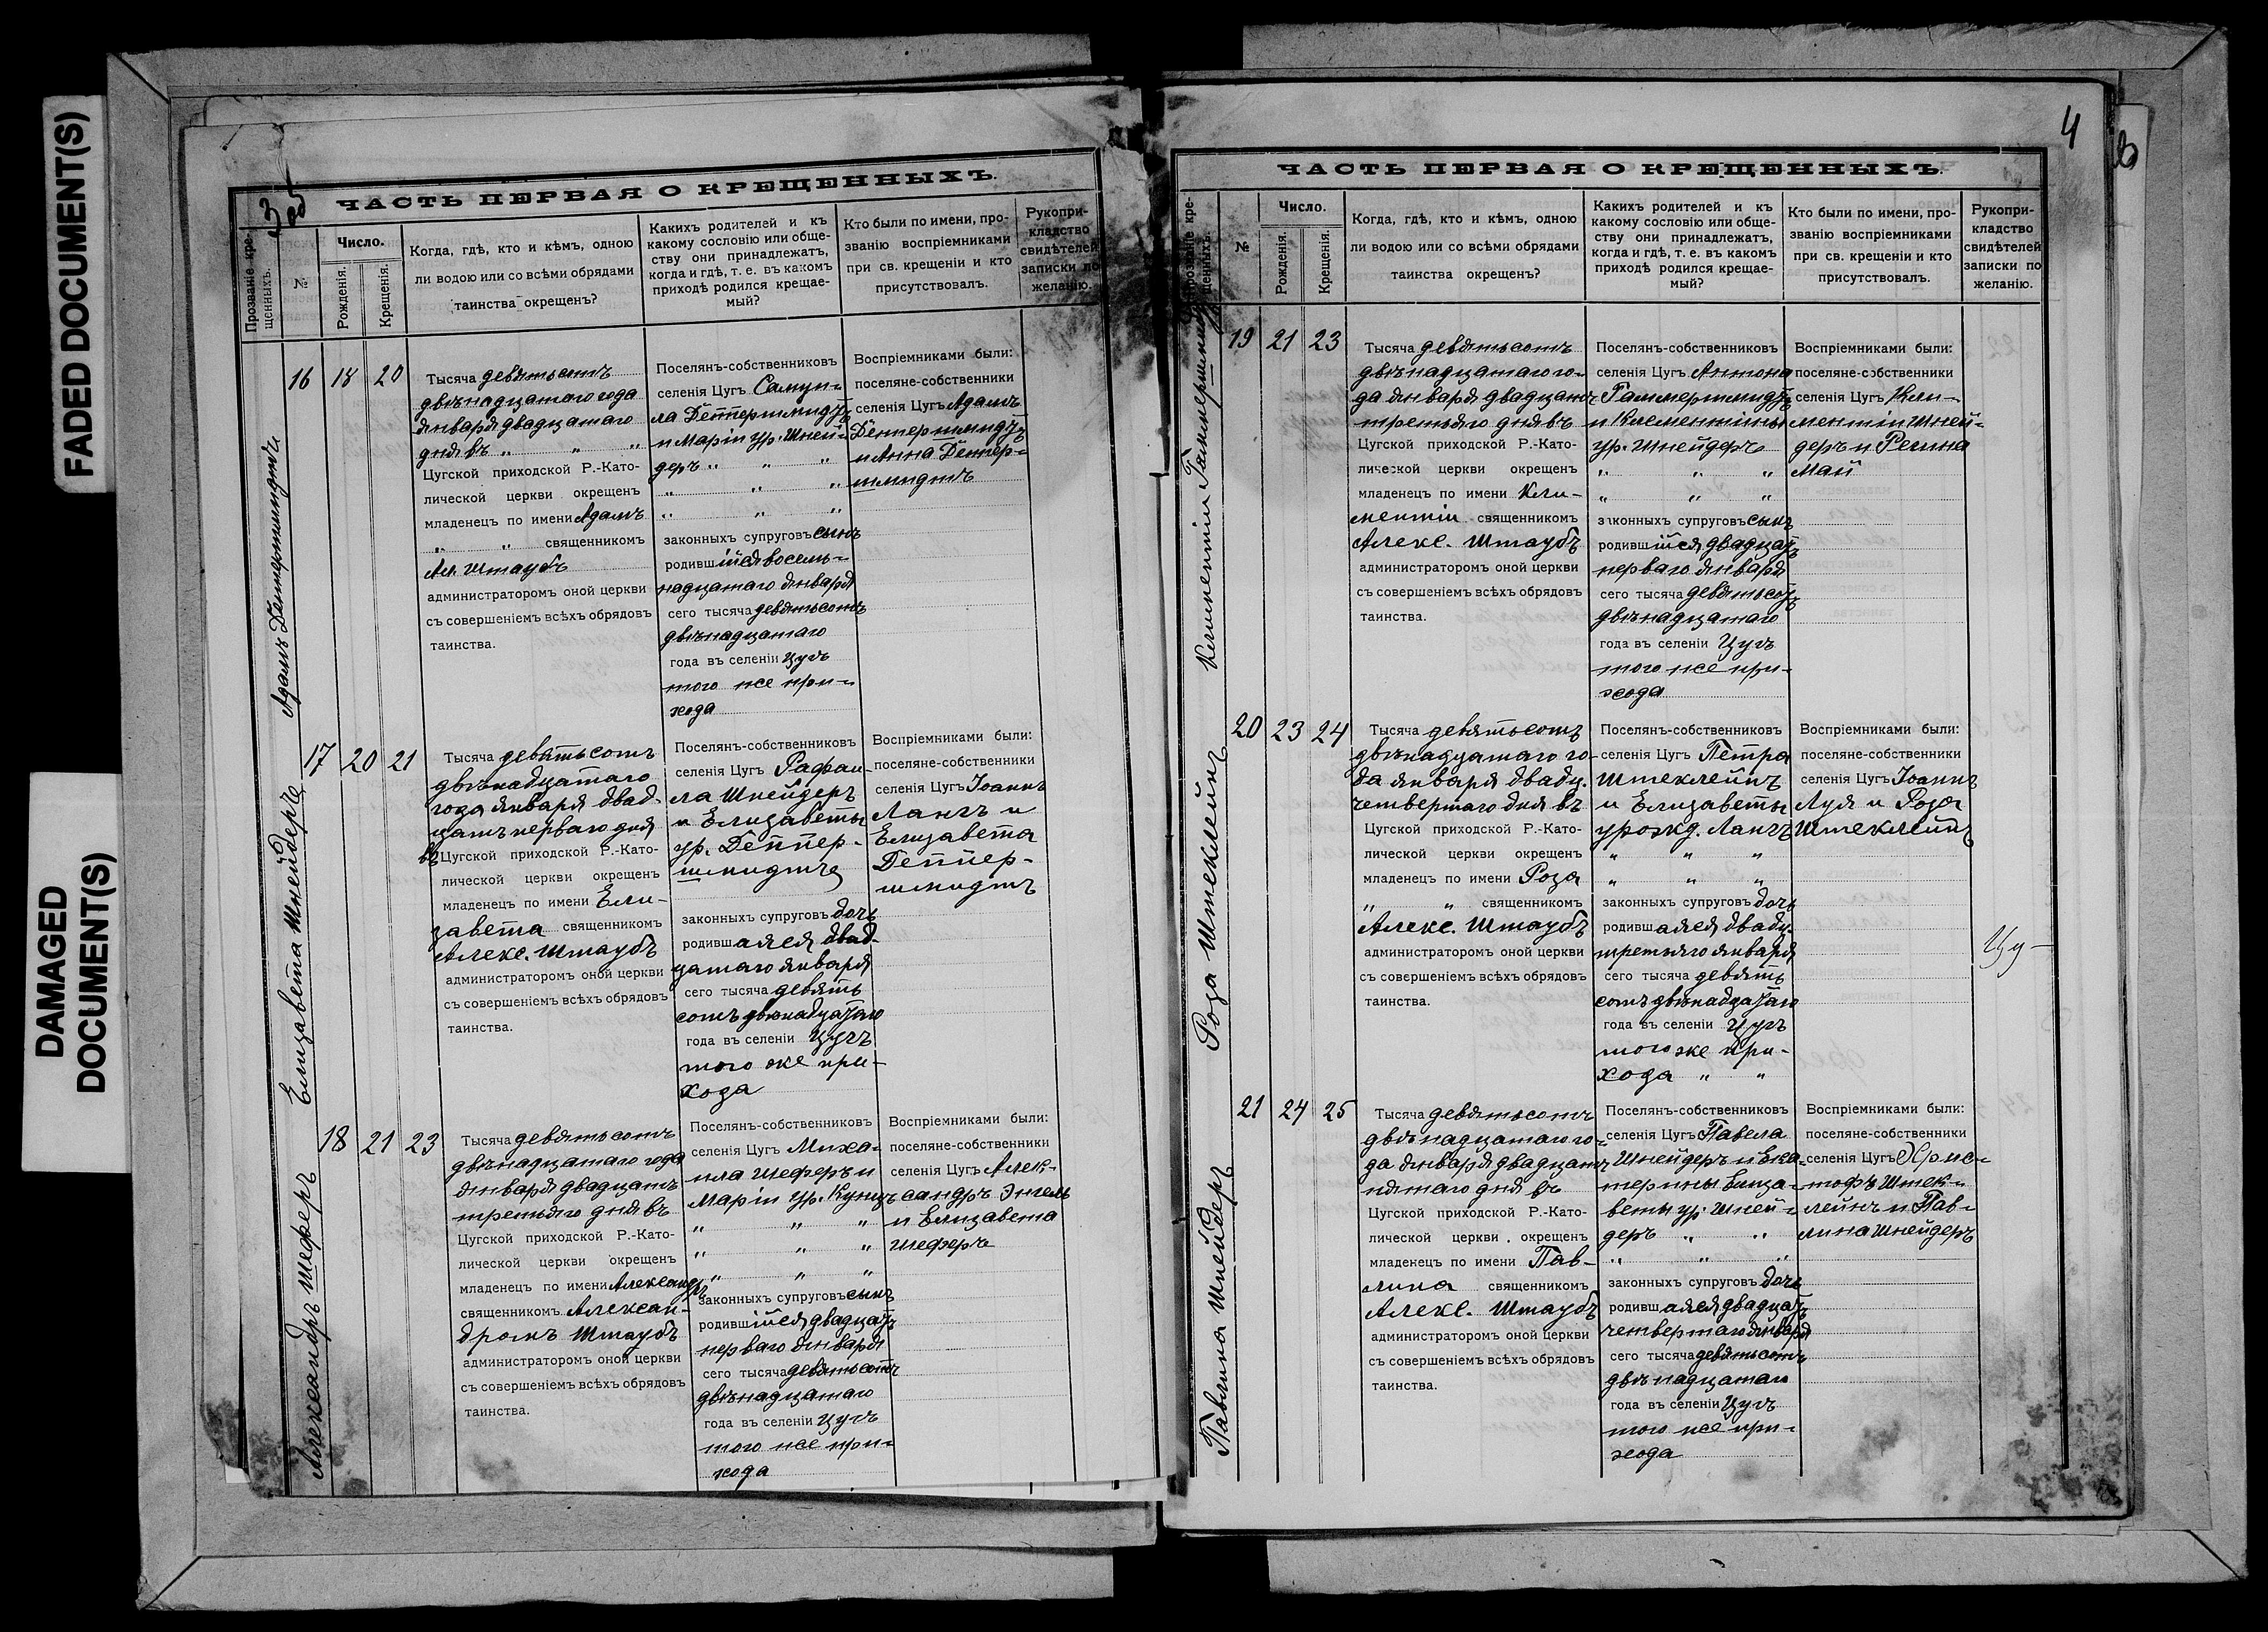 FAADED DOCUMENT(S)
DAMAGED
DOCUMENT(S)
3
ЧАСТЬ ПЕРВАЯ О КРЕЩЕННЫХЪ.
Прозваніе кре-
щенныхъ.
№
Число.
Рожденія.
Крещенія.
Когда, гдѣ, кто и кѣмъ, одною
ли водою или со всѣми обрядами
таинства окрещенъ?
Какихъ родителей и къ
какому сословію или обще-
ству они принадлежатъ,
когда и гдѣ, т. е. въ какомъ
приходѣ родился крещае-
мый?
Кто были по имени, про-
званію воспріемниками
при св. крещеніи и кто
присутствовалъ.
Рукопри-
кладство
свидѣтелей
записки по
желанію.
Адамъ Деппершмидтъ
16 18 20
Тысяча девятьсотъ
двѣнадцатаго года
января двадцатаго
дня въ „ „ „
Цугской приходской Р.-Като-
лической церкви окрещенъ
младенецъ по имени Адамъ
„ „ священникомъ
Ал. Штаубъ
администраторомъ оной церкви
съ совершеніемъ всѣхъ обрядовъ
таинства.
Поселянъ-собственниковъ
селенія Цугъ Самуи-
ла Деппершмидтъ
и Маріи ур. Шней-
деръ „ „ „
„ „ „
„ „ „
законныхъ супруговъ сынъ
родившійся восем-
надцатаго января
сего тысяча девятьсотъ
двѣнадцатаго
года въ селеніи Цугъ
того же при-
хода
Воспріемниками были:
поселяне-собственники
селенія Цугъ Адамъ
Деппершмидтъ
и Анна Деппер-
шмидтъ
Елизавета Шнейдеръ
17 20 21
Тысяча девятьсотъ
двѣнадцатаго
года января двад-
цать перваго дня
въ Цугской приходской Р.-Като-
лической церкви окрещенъ
младенецъ по имени Ели-
завета священникомъ
Алекс. Штаубъ
администраторомъ оной церкви
съ совершеніемъ всѣхъ обрядовъ
таинства.
Поселянъ-собственниковъ
селенія Цугъ Рафаи-
ла Шнейдеръ
и Елизаветы
ур. Деппер-
шмидтъ
законныхъ супруговъ дочь
родившаяся двад-
цатаго января
сего тысяча девять
сотъ двѣнадцатаго
года въ селеніи Цугъ
того же при-
хода
Воспріемниками были:
поселяне-собственники
селенія Цугъ Іоаннъ
Лангъ и
Елизавета
Деппер-
шмидтъ
Александръ Шеферъ
18 21 23
Тысяча девятьсотъ
двѣнадцатаго года
января двадцать
третьяго дня въ
Цугской приходской Р.-Като-
лической церкви окрещенъ
младенецъ по имени Александръ
священникомъ Алексан-
дромъ Штаубъ
администраторомъ оной церкви
съ совершеніемъ всѣхъ обрядовъ
таинства.
Поселянъ-собственниковъ
селенія Цугъ Миха-
ила Шеферъ и
Маріи ур. Кунцъ
„ „ „
„ „ „
„ „ „
законныхъ супруговъ сынъ
родившійся двадцать
перваго января
сего тысяча девятьсотъ
двѣнадцатаго
года въ селеніи Цугъ
того же при-
хода
Воспріемниками были:
поселяне-собственники
селенія Цугъ Алек-
сандръ Энгель
и Елизавета
Шеферъ
4
ЧАСТЬ ПЕРВАЯ О КРЕЩЕННЫХЪ.
Прозваніе кре-
щенныхъ.
№
Число.
Рожденія.
Крещенія.
Когда, гдѣ, кто и кѣмъ, одною
ли водою или со всѣми обрядами
таинства окрещенъ?
Какихъ родителей и къ
какому сословію или обще-
ству они принадлежатъ,
когда и гдѣ, т. е. въ какомъ
приходѣ родился крещае-
мый?
Кто были по имени, про-
званію воспріемниками
при св. крещеніи и кто
присутствовалъ.
Рукопри-
кладство
свидѣтелей
записки по
желанію.
Климентій Гаммершмидтъ
19 21 23
Тысяча девятьсотъ
двѣнадцатаго го-
да января двадцать
третьяго дня въ
Цугской приходской Р.-Като-
лической церкви окрещенъ
младенецъ по имени Кли-
ментій священникомъ
Алекс. Штаубъ
администраторомъ оной церкви
съ совершеніемъ всѣхъ обрядовъ
таинства.
Поселянъ-собственниковъ
селенія Цугъ Антона
Гаммершмидтъ
и Клементины
ур. Шнейдеръ
„ „ „
„ „ „
законныхъ супруговъ сынъ
родившійся двадцать
перваго января
сего тысяча девятьсотъ
двѣнадцатаго
года въ селеніи Цугъ
того же при-
хода
Воспріемниками были:
поселяне-собственники
селенія Цугъ Кли-
ментій Шней-
деръ и Регина
Май
Роза Штеклейнъ
20 23 24
Тысяча девятьсотъ
двѣнадцатаго го-
да января двадц.
четвертаго дня въ
Цугской приходской Р.-Като-
лической церкви окрещенъ
младенецъ по имени Роза
„ „ священникомъ
Алекс. Штаубъ
администраторомъ оной церкви
съ совершеніемъ всѣхъ обрядовъ
таинства.
Поселянъ-собственниковъ
селенія Цугъ Петра
Штеклейнъ
и Елизаветы
урожд. Лангъ
„ „ „
„ „ „
законныхъ супруговъ дочь
родившаяся двадц.
третьяго января
сего тысяча девять
сотъ двѣнадцатаго
года въ селеніи Цугъ
того же при-
хода „ „
Воспріемниками были:
поселяне-собственники
селенія Цугъ Іоаннъ
Луя и Роза
Штеклейнъ
Цу-
Павлина Шнейдеръ
21 24 25
Тысяча девятьсотъ
двѣнадцатаго го-
да января двадцать
пятаго дня въ
Цугской приходской Р.-Като-
лической церкви окрещенъ
младенецъ по имени Пав-
лина священникомъ
Алекс. Штаубъ
администраторомъ оной церкви
съ совершеніемъ всѣхъ обрядовъ
таинства.
Поселянъ-собственниковъ
селенія Цугъ Павела
Шнейдеръ и Ека-
терины Елиза-
веты ур. Шней-
деръ „ „
„ „ „
законныхъ супруговъ дочь
родившаяся двадцать
четвертаго января
сего тысяча девятьсотъ
двѣнадцатаго
года въ селеніи Цугъ
того же при-
хода
Воспріемниками были:
поселяне-собственники
селенія Цугъ Хрис-
тофъ Штек-
лейнъ и Пав-
лина Шнейдеръ